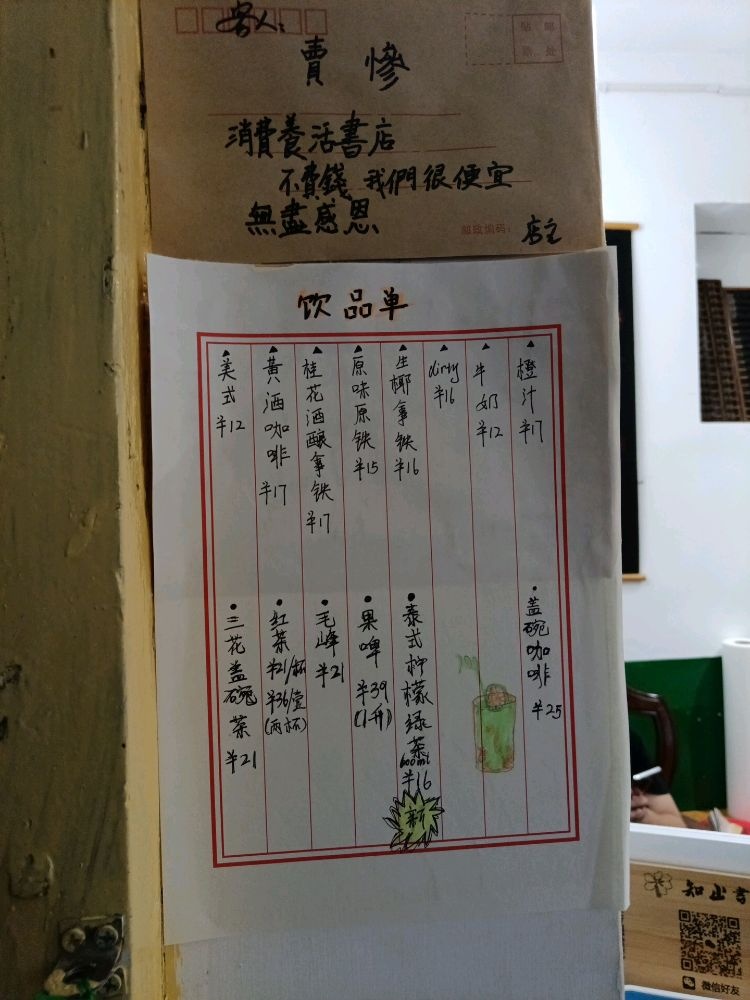 客人：
賣慘
消費養活書店
不費錢 我們很便宜
無盡感恩
邮政编码：
店主
贴 邮
票 处
饮品单
▲橙汁 ¥17
▲牛奶 ¥12
▲dirty ¥16
▲生椰拿铁 ¥16
▲原味原铁 ¥15
▲桂花酒酿拿铁 ¥17
▲黄酒咖啡 ¥17
▲美式 ¥12
•盖碗咖啡 ¥25
•泰式柠檬绿茶 600ml ¥16
新
•果啤 ¥39 (1升)
•毛峰 ¥21
•红茶 ¥21/杯 ¥36/壶 (两杯)
•三花盖碗茶 ¥21
知止書
微信好友